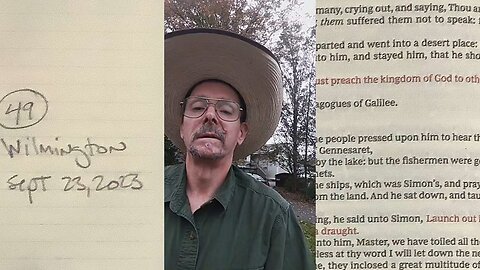 49
Wilmington
Sept 23, 2023
many, crying out, and saying, Thou
them suffered them not to speak:
parted and went into a desert place:
to him, and stayed him, that he sho
ust preach the kingdom of God to oth
agogues of Galilee.
e people pressed upon him to hear th
Gennesaret,
by the lake: but the fishermen were go
nets.
he ships, which was Simon's, and pray
om the land. And he sat down, and tau
ng, he said unto Simon, Launch out i
draught.
nto him, Master, we have toiled all the
less at thy word I will let down the ne
e, they inclosed a great multitude of